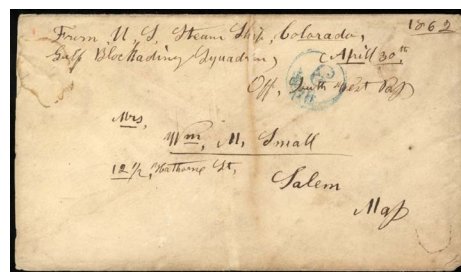 1862
From U, S, Steam Ship, Colorado,
Gulf Blockading Squadron, (April 30,th
Off, South West Pass
Mrs,
Wm, M, Small
12 1/2, Hathorne St,
Salem
Mass